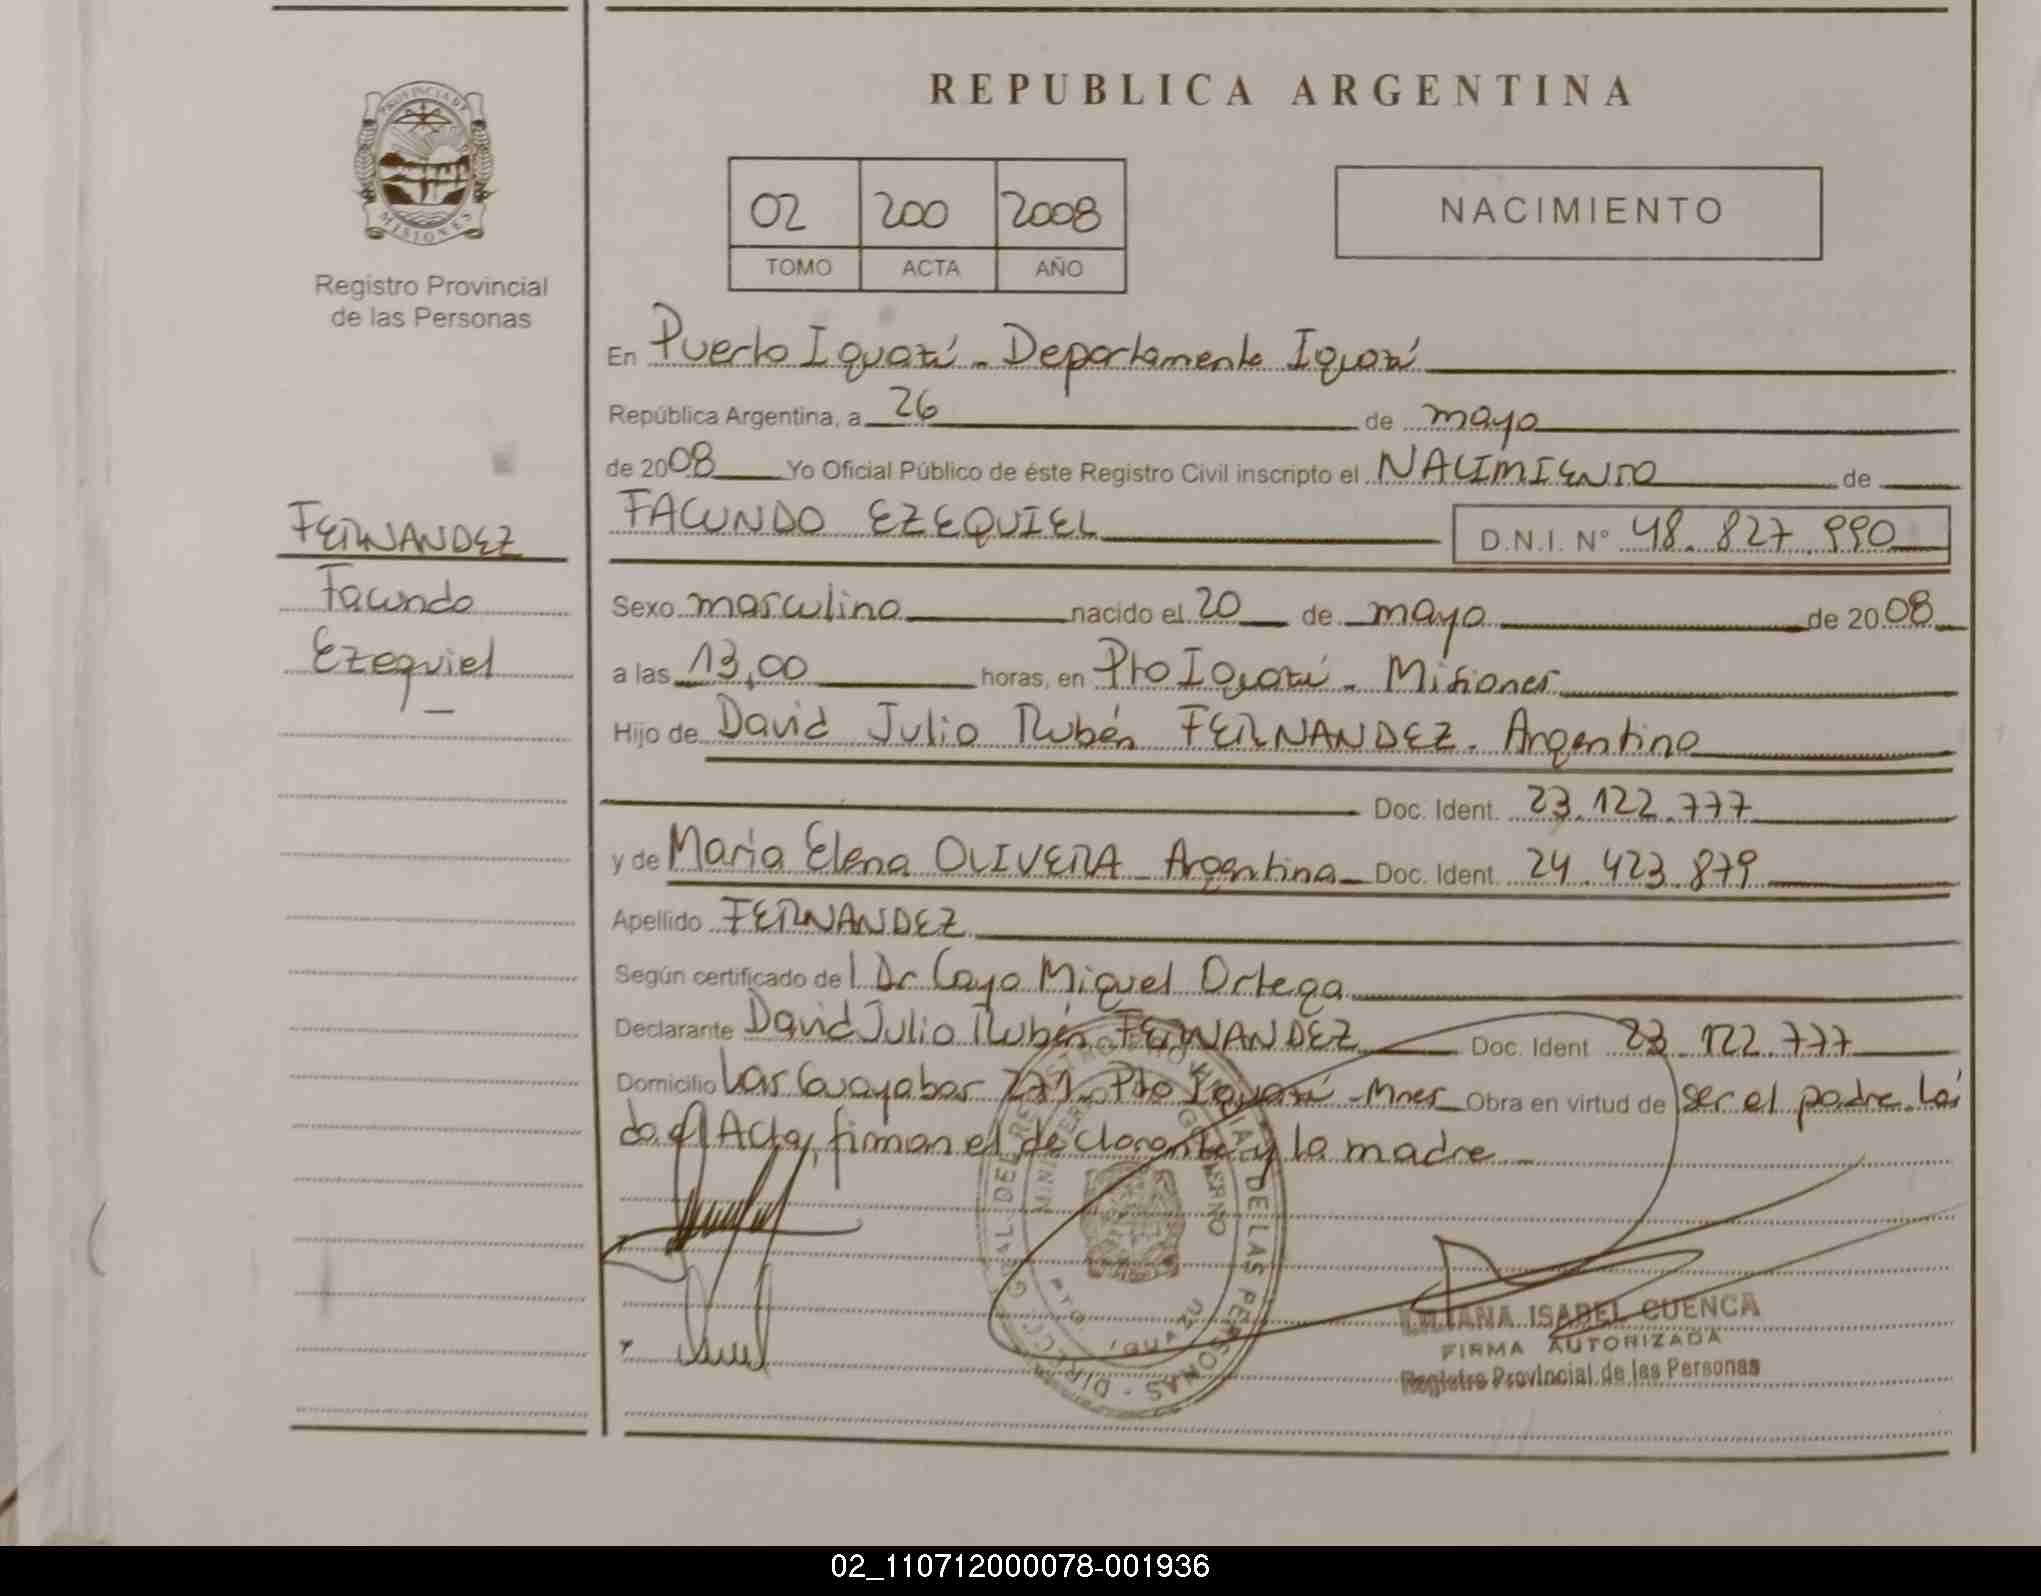 REPUBLICA ARGENTINA
PROVINCIA DE
MISIONES
Registro Provincial
de las Personas
02 200 2008
TOMO ACTA AÑO
NACIMIENTO
En Puerto Iguazú - Departamento Iguazú
República Argentina, a 26 de mayo
de 2008 Yo Oficial Público de éste Registro Civil inscripto el NACIMIENTO de
FACUNDO EZEQUIEL D.N.I. Nº 48.827.990
FERNANDEZ
Facundo
Ezequiel
Sexo masculino nacido el 20 de mayo de 2008
a las 13,00 horas, en Pto Iguazú - Misiones
Hijo de David Julio Rubén FERNANDEZ. Argentino
Doc. Ident. 23.122.777
y de Maria Elena OLIVERA - Argentina - Doc. Ident. 24.423.879
Apellido FERNANDEZ
Según certificado del Dr Cayo Miguel Ortega
Declarante David Julio Rubén FERNANDEZ Doc. Ident 23.122.777
Domicilio Las Guayabas Pto Iguazú - Mnes Obra en virtud de ser el padre. Leí
do el Acta, firman el declarante y la madre
DIRECC. GRAL. DEL REGISTRO PROVINCIAL DE LAS PERSONAS
MINISTERIO GOBIERNO
PTO. IGUAZU
LILIANA ISABEL CUENCA
FIRMA AUTORIZADA
Registro Provincial de las Personas
02_110712000078-001936